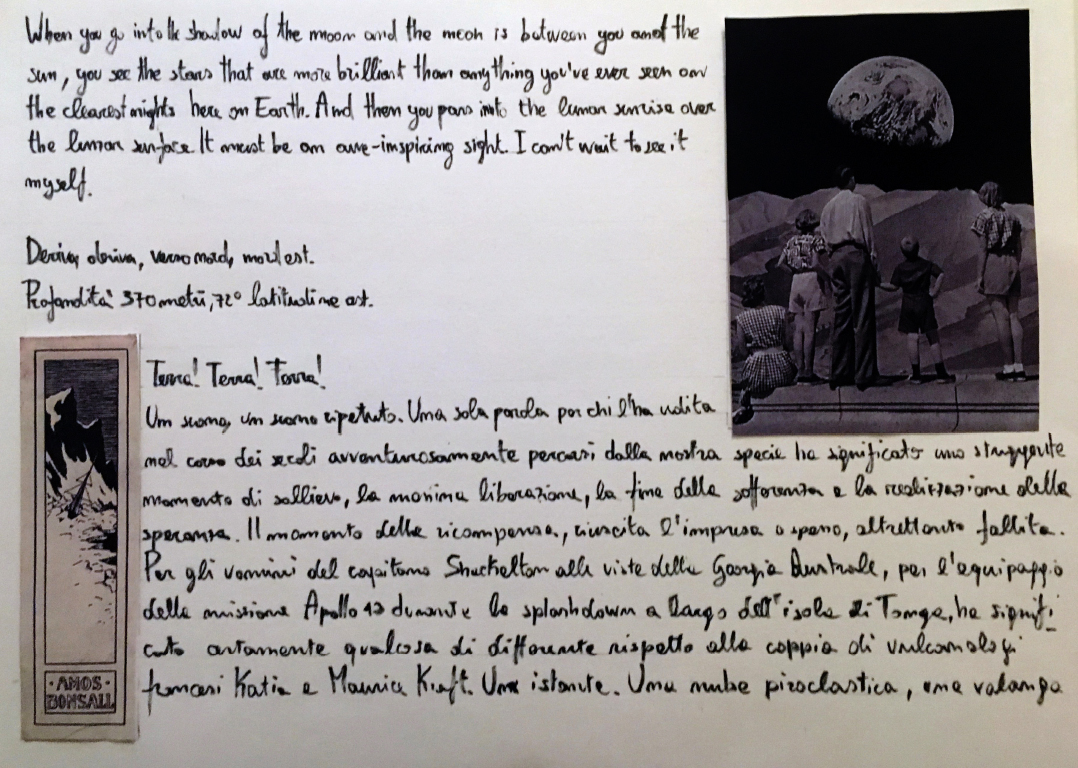 When you go into the shadow of the moon and the moon is between you and the
sun, you see the stars that are more brilliant than anything you've ever seen on
the clearest nights here on Earth. And then you pass into the lunar sunrise over
the lunar surface It must be an awe-inspiring sight. I can't wait to see it
myself.
Deriva, deriva, verso nord, nord est.
Profondità 370 metri, 72° latitudine est.
Terra! Terra! Terra!
Un suono, un suono ripetuto. Una sola parola per chi l'ha udita
nel corso dei secoli avventurosamente percorsi dalla nostra specie ha significato uno struggente
momento di sollievo, la monima liberazione, la fine della sofferenza e la realizzazione della
speranza. Il momento della ricompensa, riuscita l'impresa o spesso, altrettanto fallita.
Per gli uomini del capitano Shackelton alla vista della Georgia Australe, per l'equipaggio
della missione Apollo 13 durante lo splashdown a largo dell'isola di Tonga, ha signifi
cato certamente qualcosa di differente rispetto alla coppia di vulcanologi
francesi Katia e Maurice Kraft. Un istante. Una nube piroclastica, una valanga
·AMOS·
BONSALL